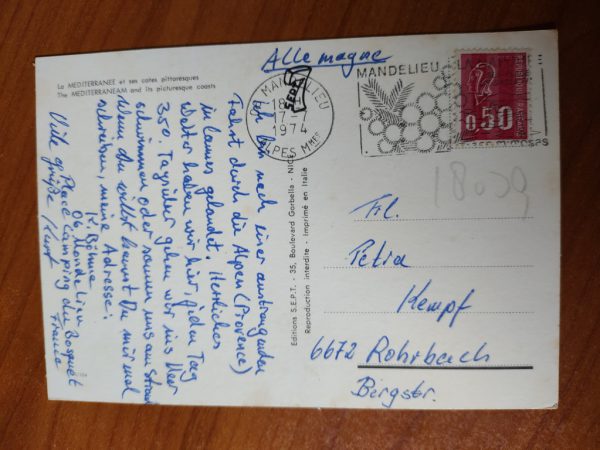 La MEDITERRANEE et ses cotes pittoresques
The MEDITERRANEAM and its picturesque coasts
Allemagne
MANDELIEU
18 H
17-7
1974
ALPES Mmes
REPUBLIQUE FRANÇAISE
0,50
18.09
ich bin nach einer anstrengenden
Fahrt durch die Alpen (Provence)
in Cannes gelandet. Herrliches
Wetter haben wir hier, jeden Tag
35°. Tagsüber gehen wir ins Meer
schwimmen oder sonnen uns am Strand
Wenn du willst kannst Du mir mal
schreiben, meine Adresse:
K. Böhme
06 Mandelieu
Place Camping du Bosquet
France
Viele
grüße Kurt
Editions S.E.P.T. - 35, Boulevard Gorbella - NICE
Reproduction interdite - Imprimé en Italie
SEPT
Frl.
Petra
Kempf
6672 Rohrbach
Bergstr.